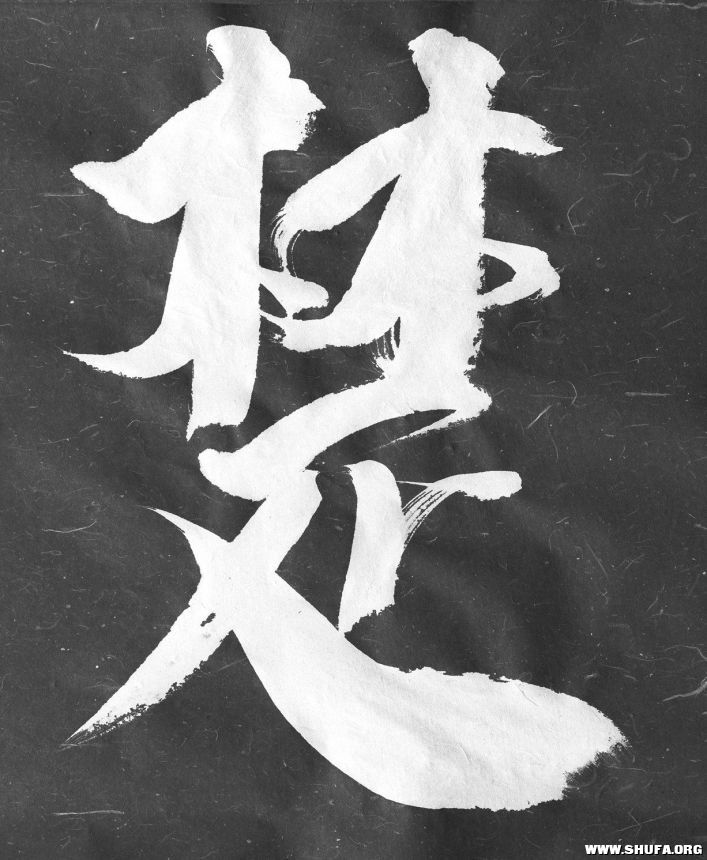 楚
WWW.SHUFA.ORG